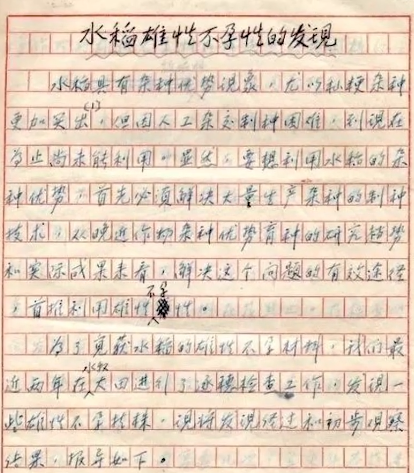 水稻雄性不孕性的发现
水稻具有杂种优势现象，尤以籼粳杂种
更加突出(1)，但因人工杂交制种困难，到现在
为止尚未能利用。显然，要想利用水稻的杂
种优势，首先必须解决大量生产杂种的制种
技术，从晚近作物杂种优势育种的研究趋势
和实际成果来看，解决这个问题的有效途径
，首推利用雄性不孕性。
为了寻获水稻的雄性不孕材料，我们最
近两年在水稻大田进行了逐穗检查工作，发现一
些雄性不孕植株，现将发现经过和初步观察
结果，报导如下。